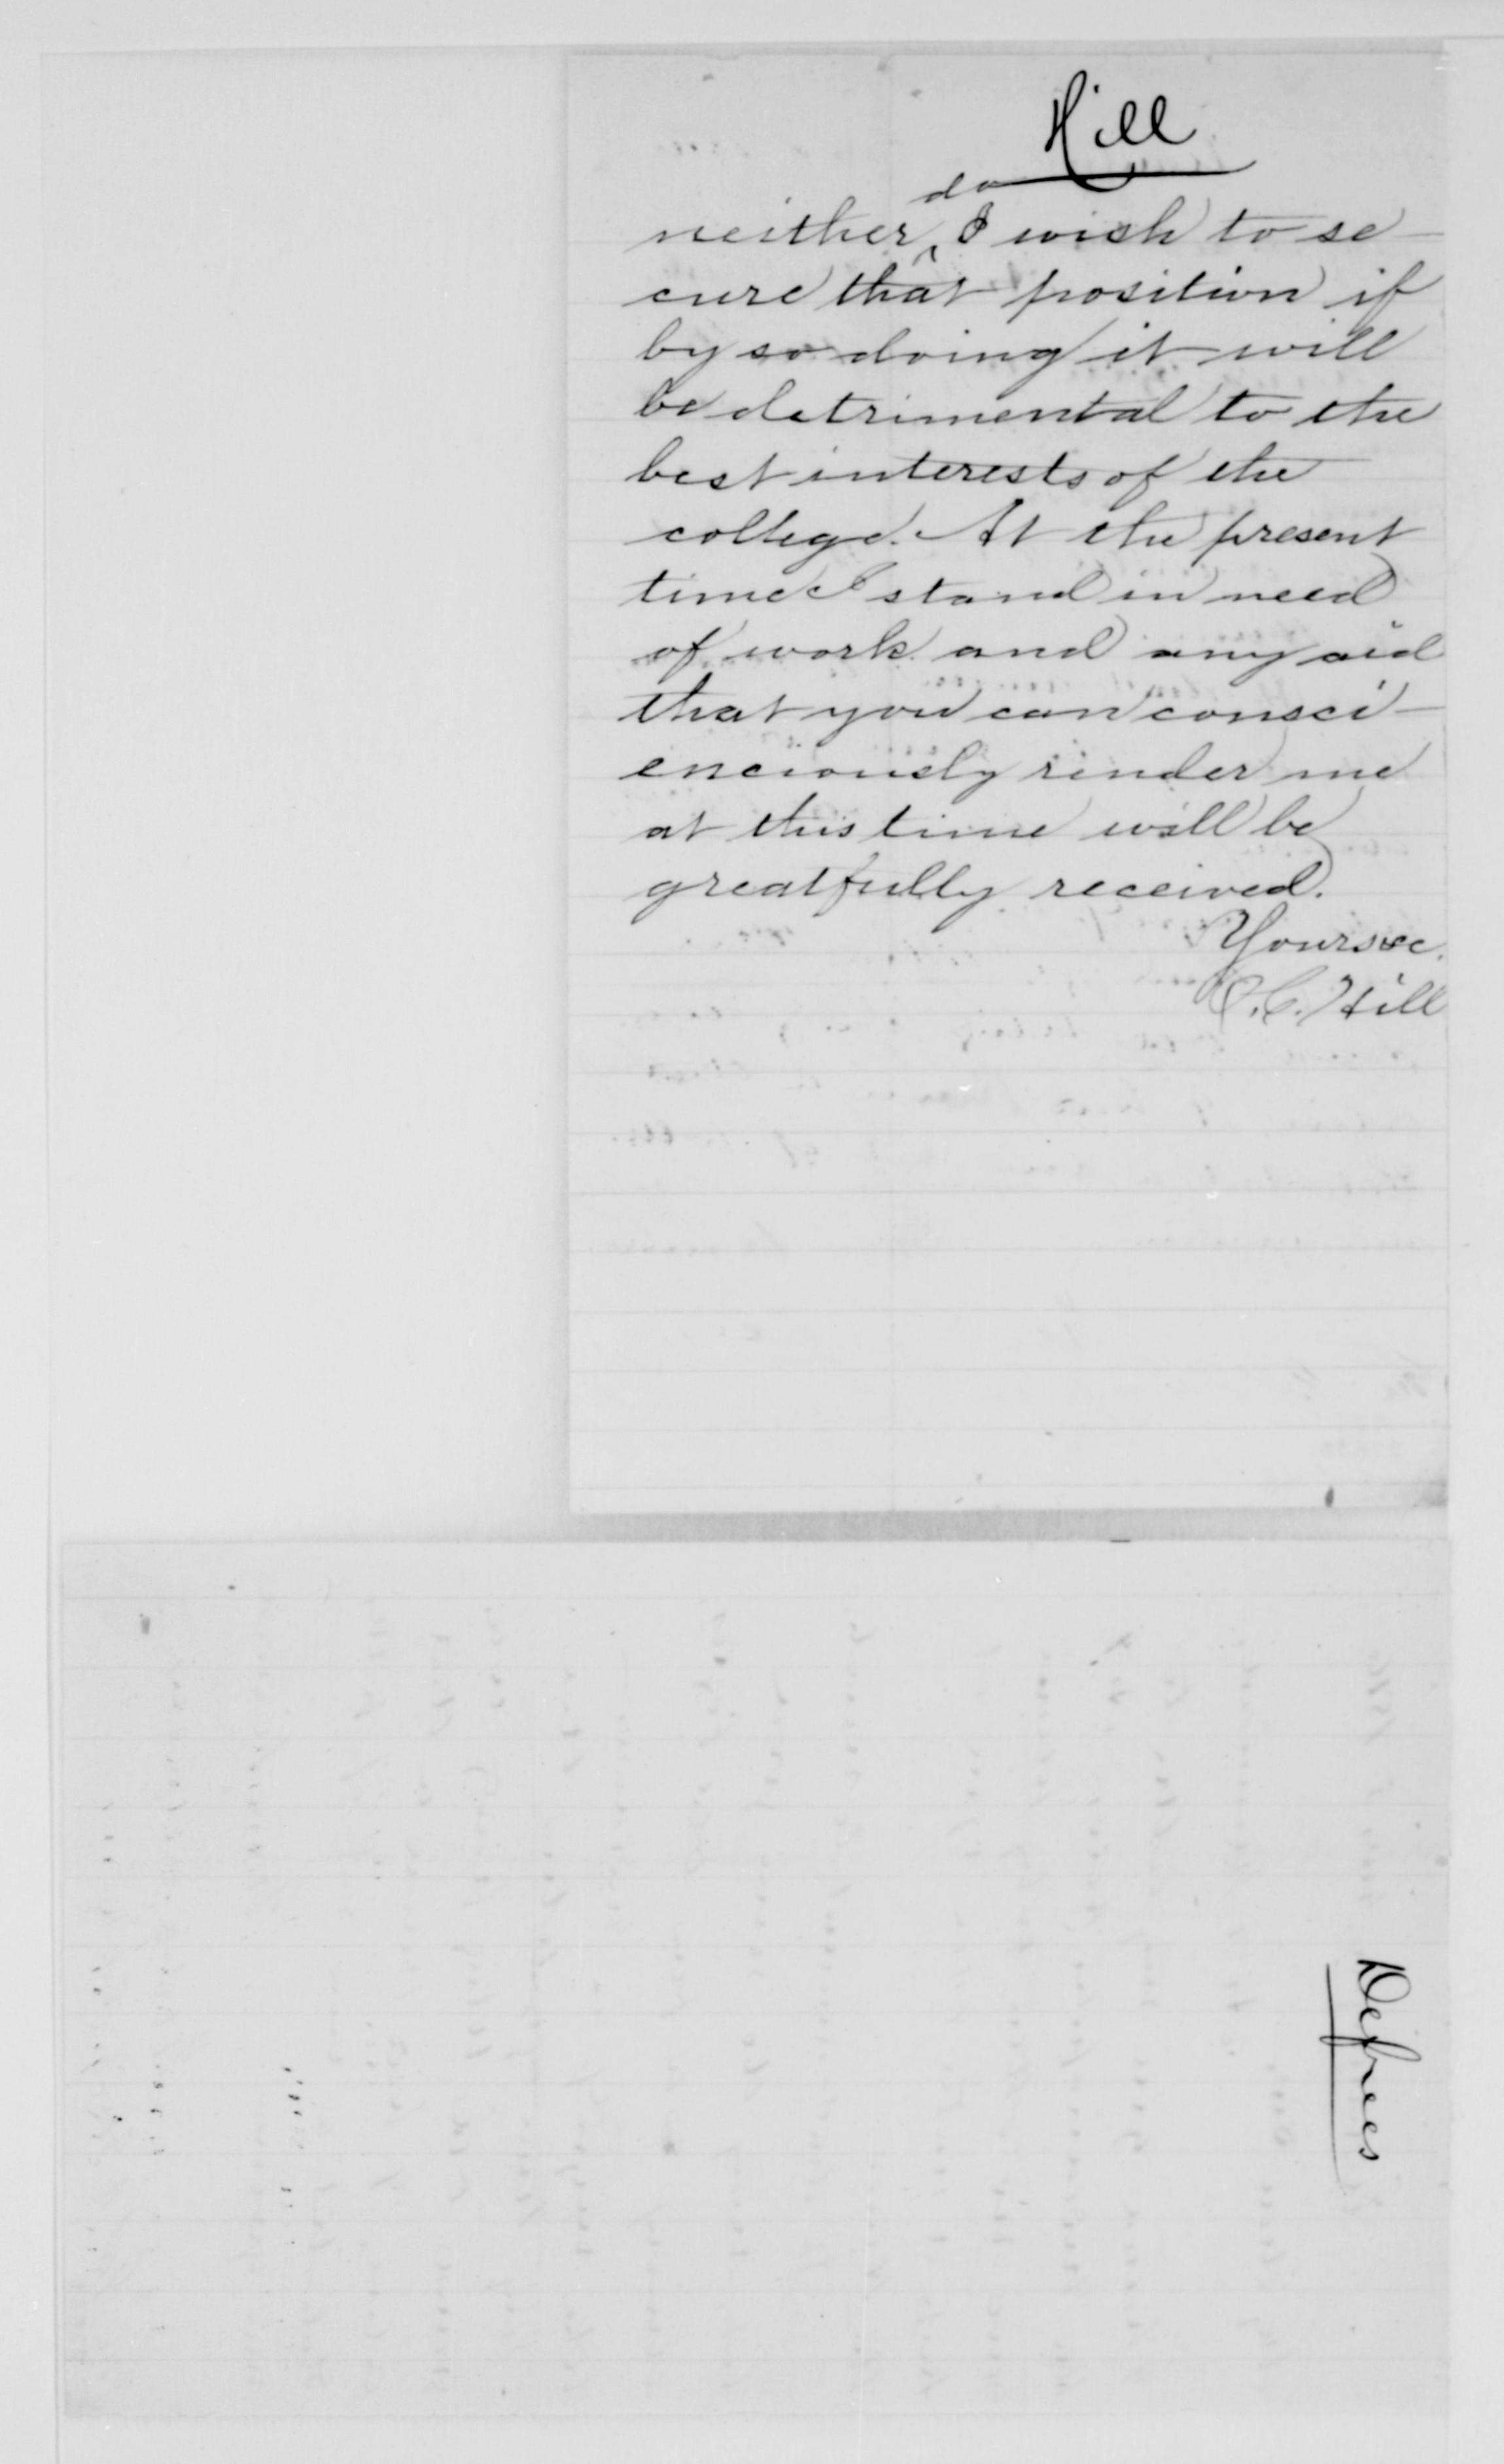 Hill
neither do I wish to se-
cure that position if
by so doing it will
be detrimental to the
best interests of the
college. At the present
time I stand in need
of work and any aid
that you can consci-
enciously render me
at this time will be
greatfully received.
Yours &c.
O.C. Hill
Defrees